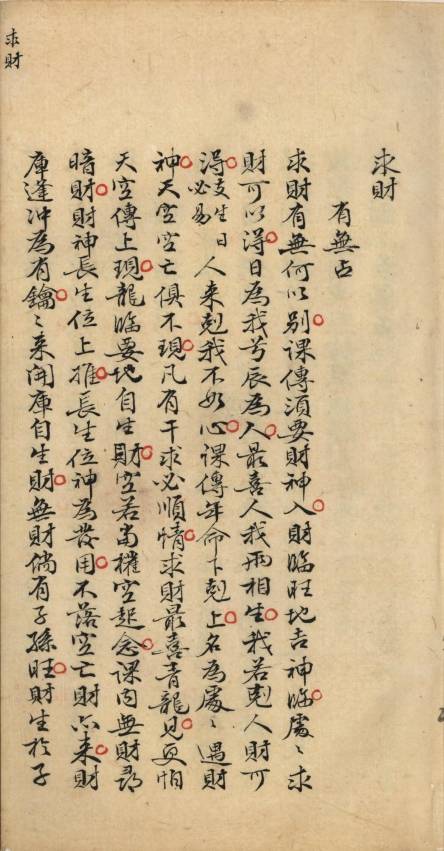 求財
求財
有無占
求財有無何以別課傳須要財神入財臨旺地吉神臨處〻求
財可以得日為我兮辰為人最喜人我兩相生我若剋人財可
得支生日必易人来剋我不如心課傳年命下剋上名為處〻遇財
神天空空亡俱不現凡有干求必順情求財最喜青龍見更怕
天空傳上現龍臨要地自生財空若当權空起念課內無財尋
暗財財神長生位上推長生位神為發用不落空亡財亦来財
庫逢冲為有鑰〻来開庫自生財無財倘有子孫旺財生於子